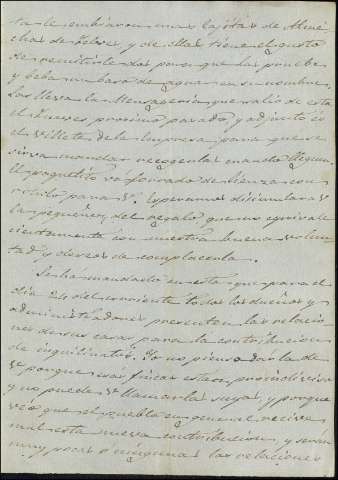 ta le embiaron unas cajitas de Almé
cibar de Yelves, y de ellas tiene el gusto
de remitirle dos para que las pruebe
y beba un vaso de agua en su nombre.
Las lleva la Mensageria que salió de esta
el Jueves proximo pasado y adjunto és
el villete de la Empresa para que se
sirva mandar recogerlas cuando lleguen.
El paquetito va forrado de lienzo con
rotulo para V. Esperamos disimulará V.
la pequeñez del regalo que no equivale
ciertamente con nuestra buena volun
tad y deseos de complacerla.
Se ha mandado en esta que para el
dia 24 del corriente todos los dueños y
administradores presenten las relacio
nes de sus casas para la contribucion
de inquilinatos. Yo no pienso dar la de
V. porque esas fincas estan proindiviso
y no puede V. llamarlas suyas, y porque
veo que el pueblo en general recive
mal esta nueva contribucion, y seran
muy pocas ó ningunas las relaciones